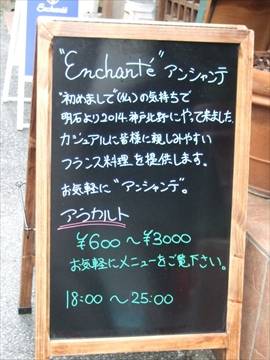 Enchanté
"Enchanté" アンシャンテ
"初めまして"(仏)の気持ちで
明石より2014.神戸北野にやって来ました。
カジュアルに皆様に親しみやすい
フランス料理を提供します。
お気軽に"アンシャンテ"。
アラカルト
¥600~¥3000
お気軽にメニューをご覧下さい。
18:00~25:00